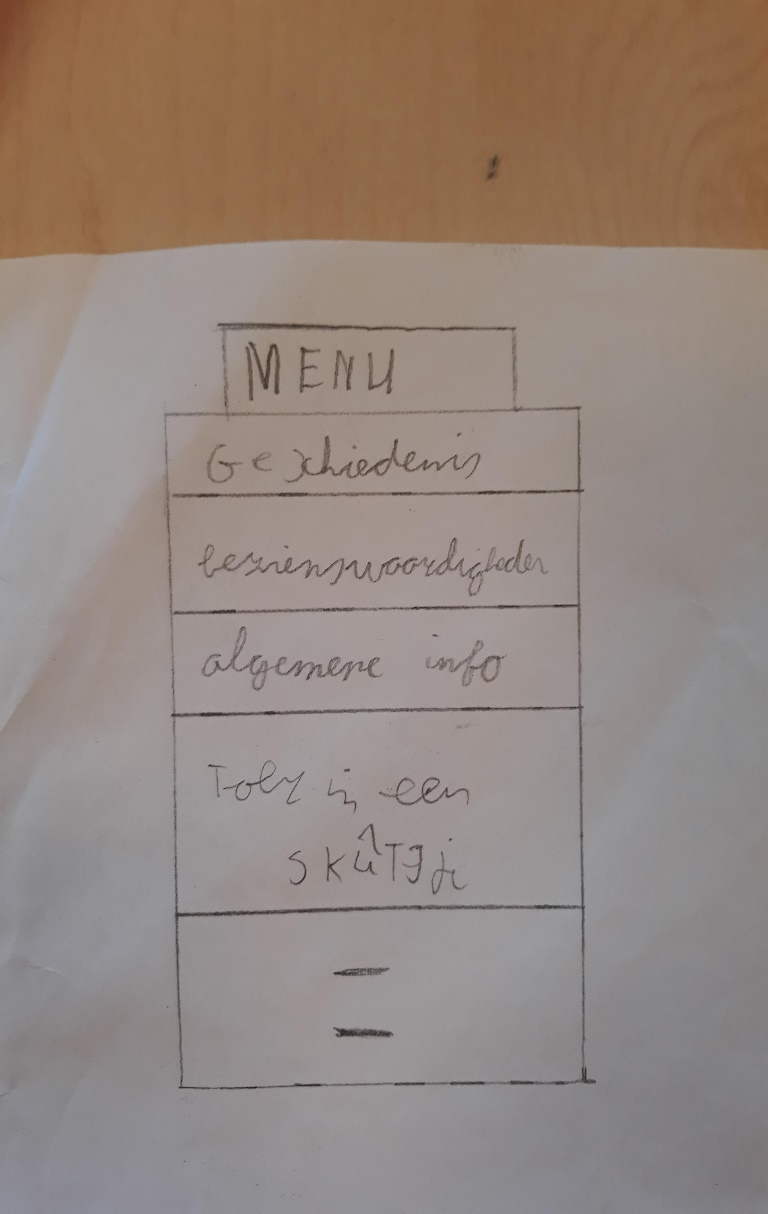 MENU
Geschiedenis
bezienswaardigheden
algemene info
Toby in een
skûTJji